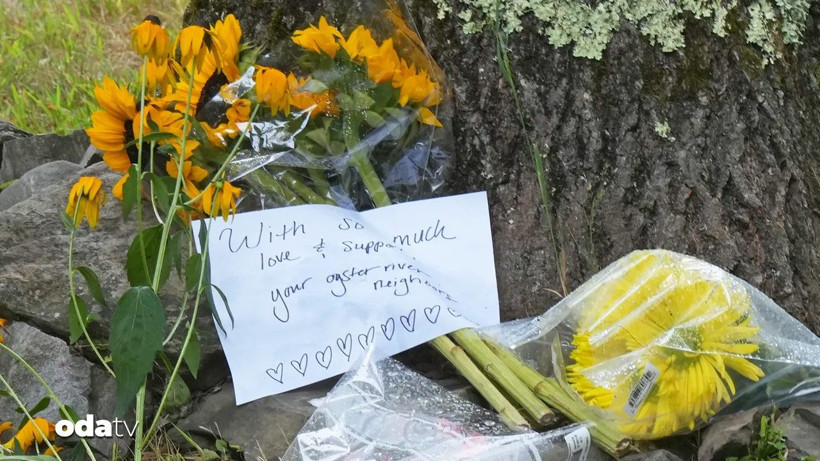 With So much
love & support
your oyster river
neighbors
odatv